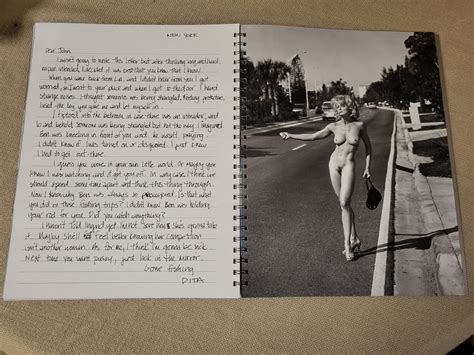 NEW YORK
Dear John,
I wasn't going to write this letter but after thinking long and hard,
I decided it was best that you know that I know.
When you came back from L.A. and I didn't hear from you I got
worried, so I went to your place and when I got to the door I heard
strange noises. I thought someone was being strangled. Feeling protective,
I used the key you gave me and let myself in.
I tiptoed into the bedroom in case there was an intruder, and
lo and behold, someone was being strangled but not the way I imagined
Ben was kneeling in front of you and he wasn't praying.
I didn't know if I was turned on or disgusted. I just knew
I had to get out there.
I guess you were in your own little world. Or maybe you
knew I was watching and it got you off. In any case, I think we
should spend some time apart and think this thing through.
Now I know why Ben was always so preoccupied. Is that what
you did on those fishing trips? I didn't know Ben was holding
your rod for you. Did you catch anything?
I haven't told Ingrid yet. I'm not sure how she's gonna take
it. Maybe she'll feel better knowing her competition
isn't another woman. As for me, I think I'm gonna be sick.
Next time you want pussy, just look in the mirror.
Gone fishing
DITA